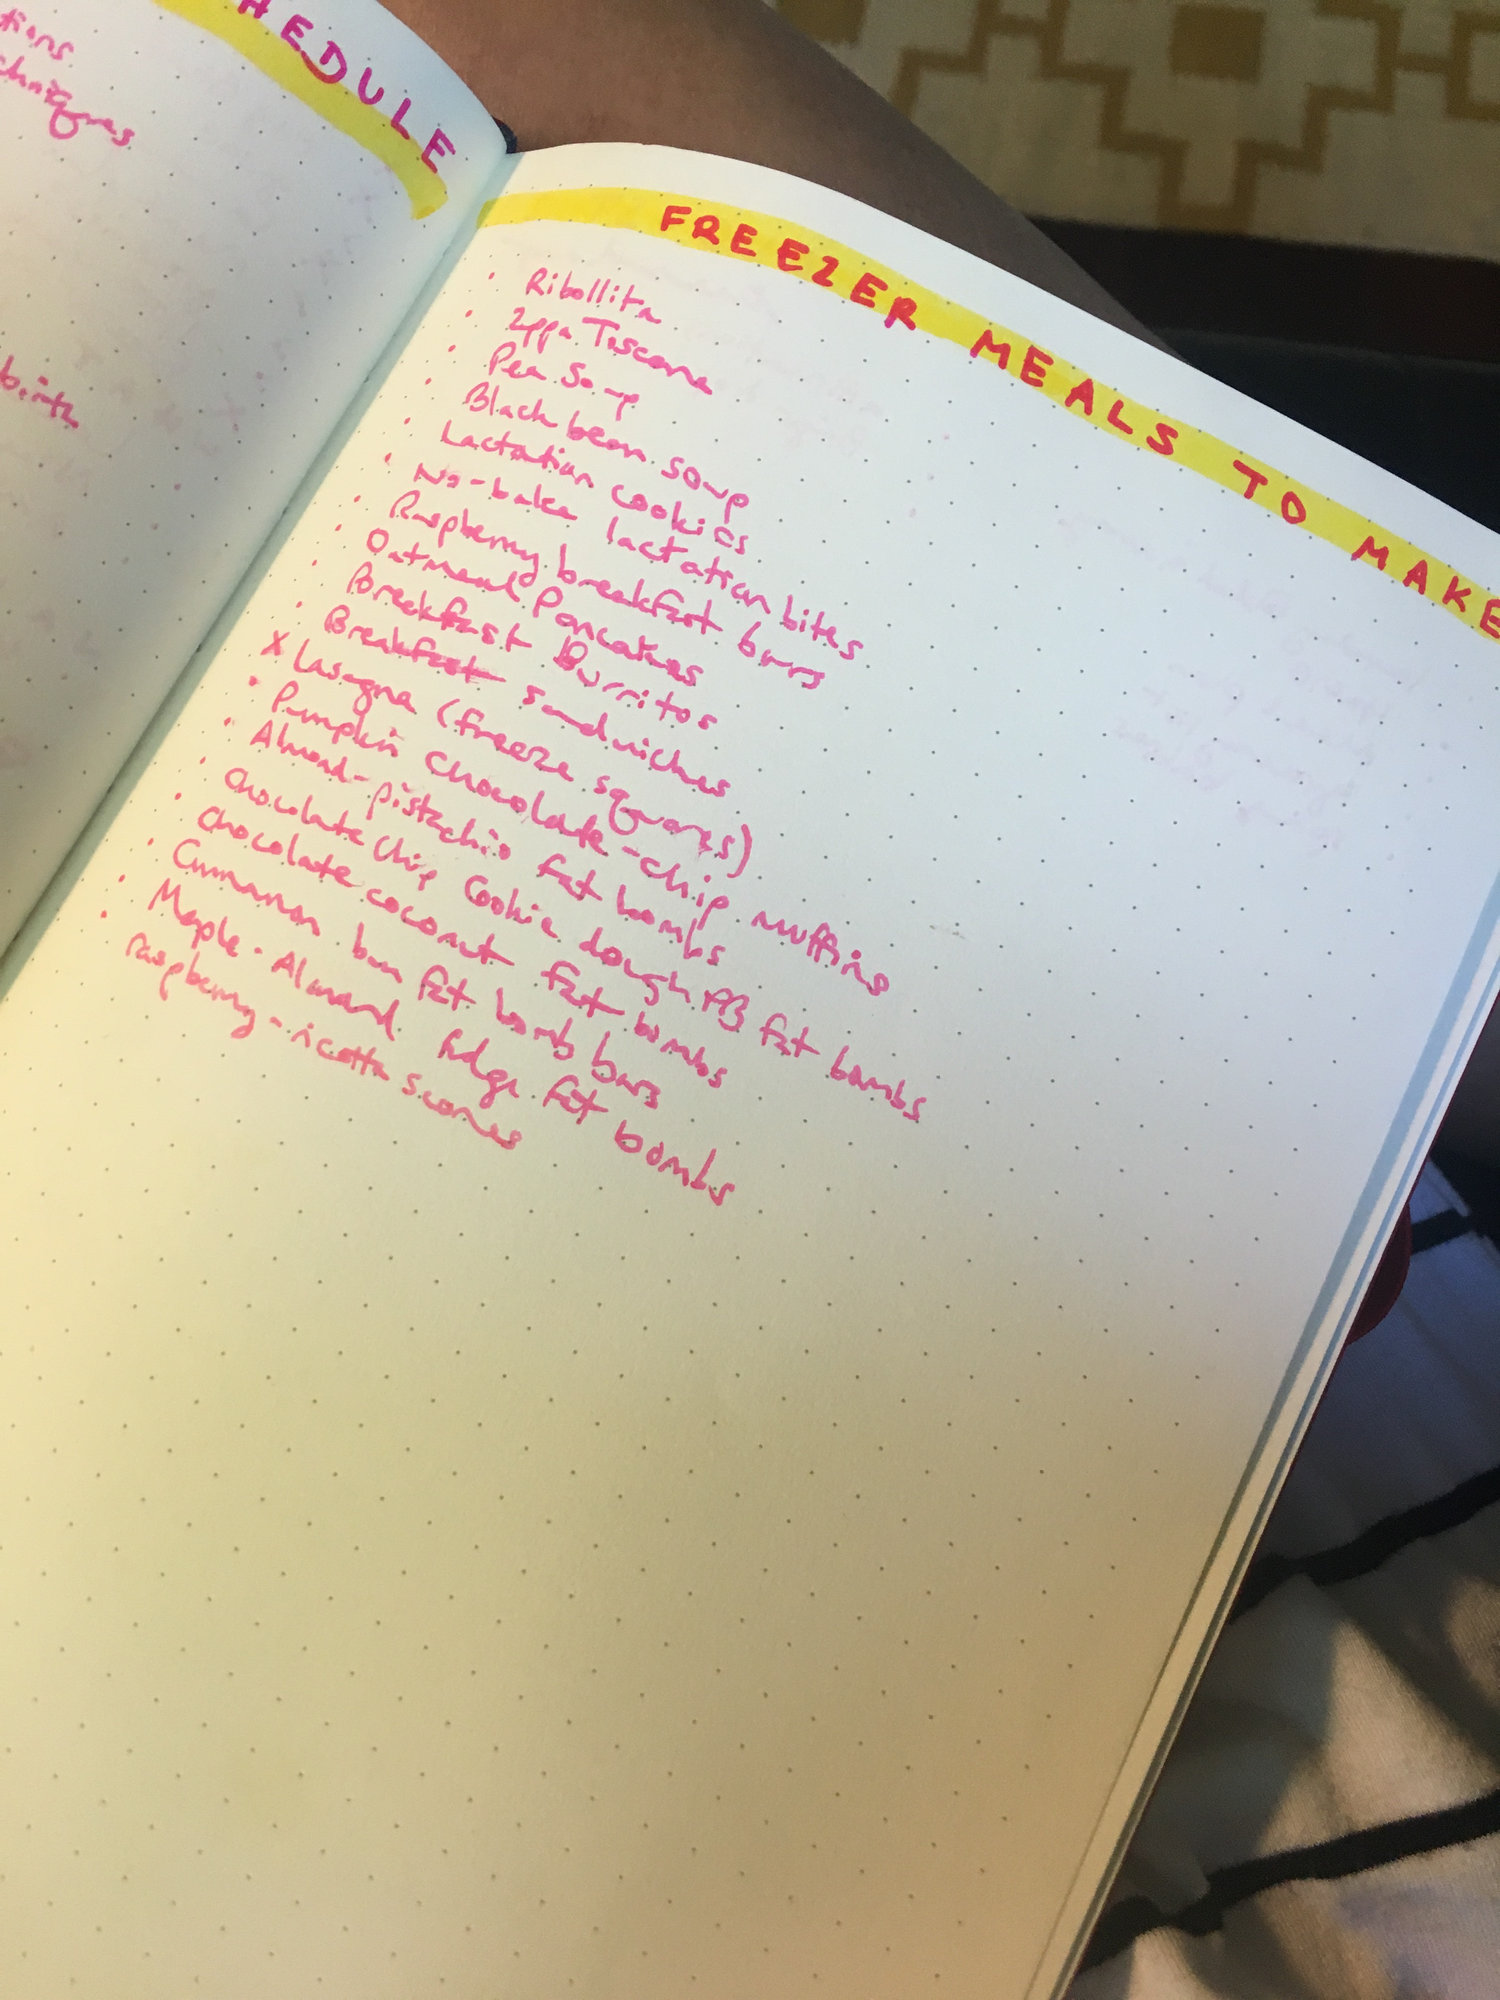 HEDULE
tions
chniques
birth
FREEZER MEALS TO MAKE
· Ribollita
· Zppa Toscana
· Pea Soup
· Black bean soup
· Lactation cookies
· No-bake lactation bites
· Raspberry breakfast bars
· Oatmeal Pancakes
· Breakfast Burritos
· Breakfast sandwiches
X Lasagna (freeze squares)
· Pumpkin chocolate-chip muffins
· Almond-pistachio fat bombs
· Chocolate Chip Cookie dough PB fat bombs
· Chocolate coconut fat bombs
· Cinnamon bun fat bomb bars
· Maple-Almond fudge fat bombs
· Raspberry-ricotta scones